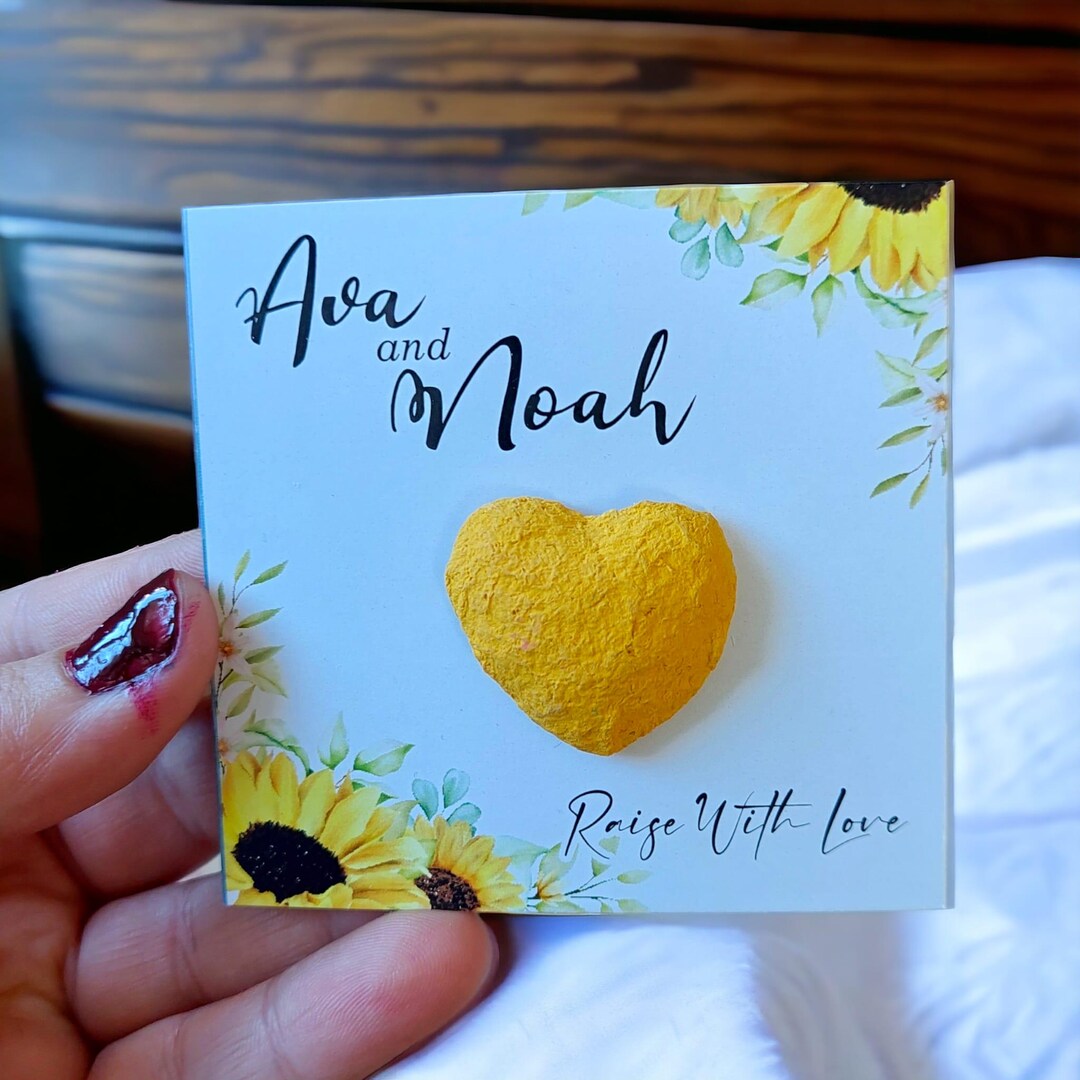 Ava
and
Noah
Raise With Love